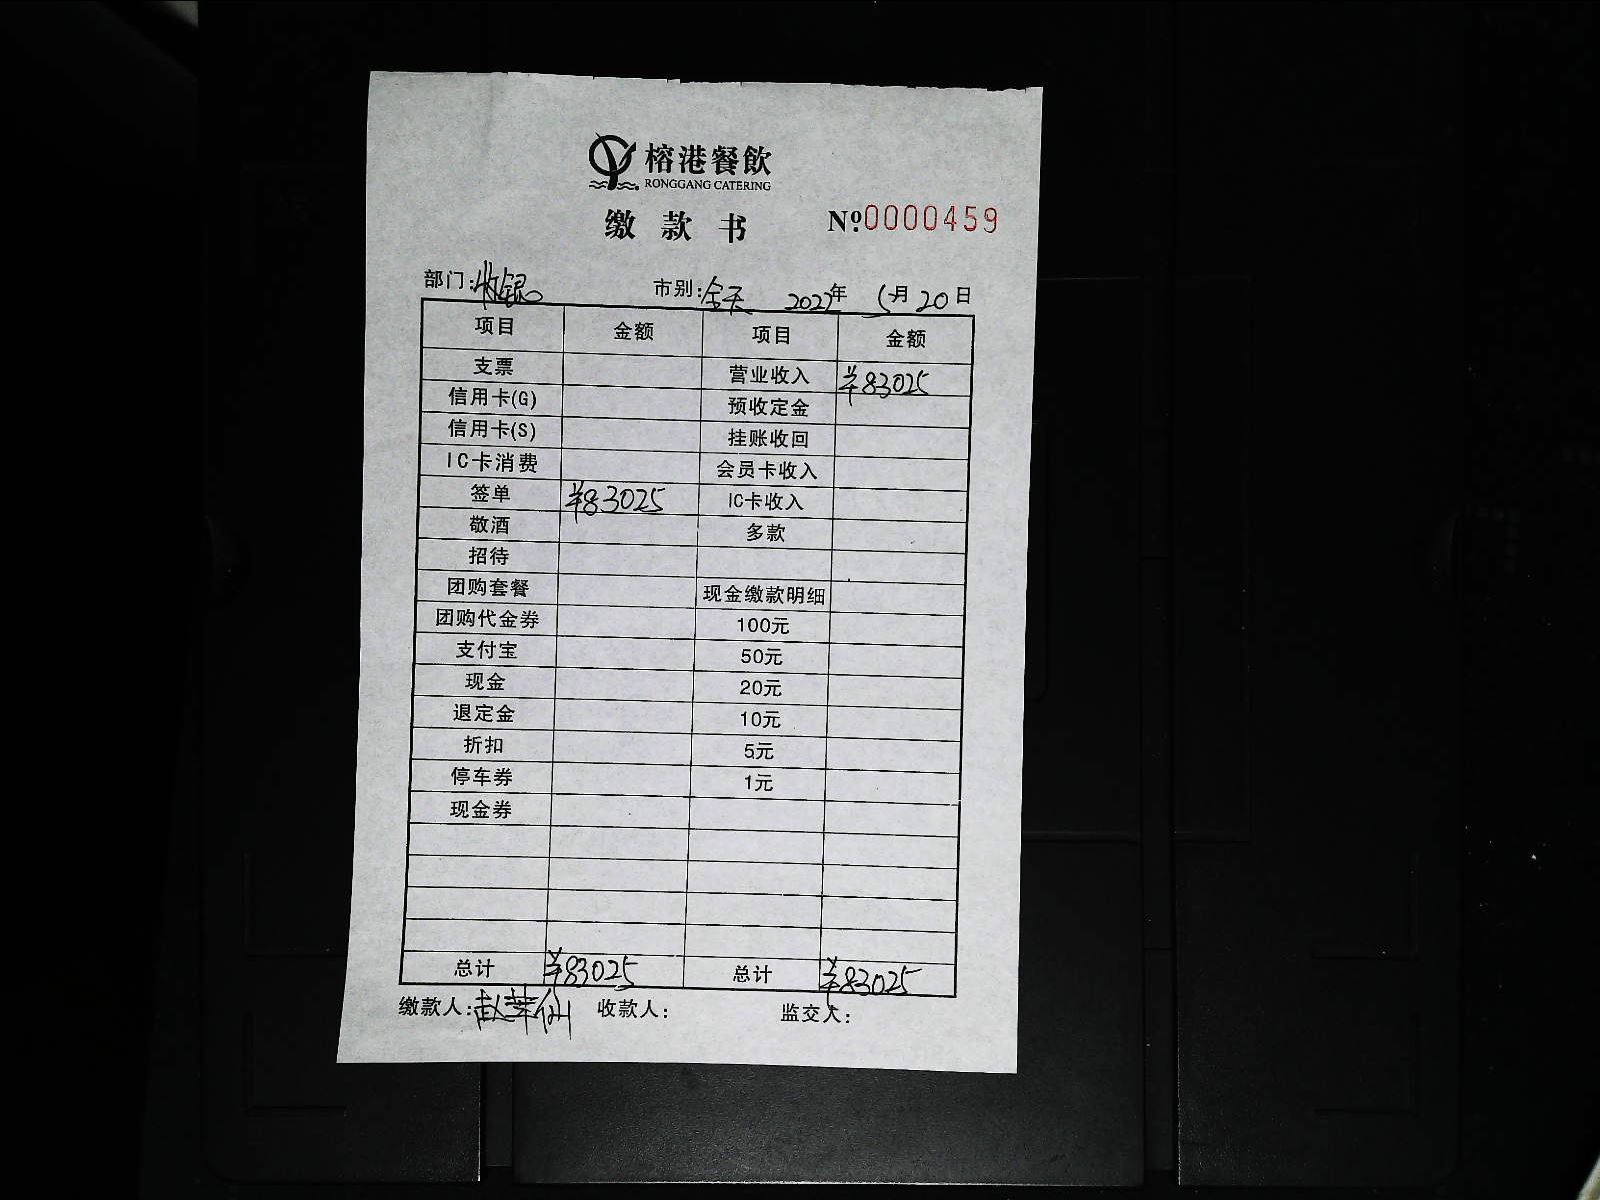 榕港餐飲
RONGGANG CATERING
缴款书 №:0000459
部门:收银 市别:全天 2022年 5月20日
项目 金额 项目 金额
支票 营业收入 ¥83025
信用卡(G) 预收定金
信用卡(S) 挂账收回
IC卡消费 会员卡收入
签单 ¥83025 IC卡收入
敬酒 多款
招待
团购套餐 现金缴款明细
团购代金券 100元
支付宝 50元
现金 20元
退定金 10元
折扣 5元
停车券 1元
现金券
总计 ¥83025 总计 ¥83025
缴款人:赵苹仙 收款人: 监交人: